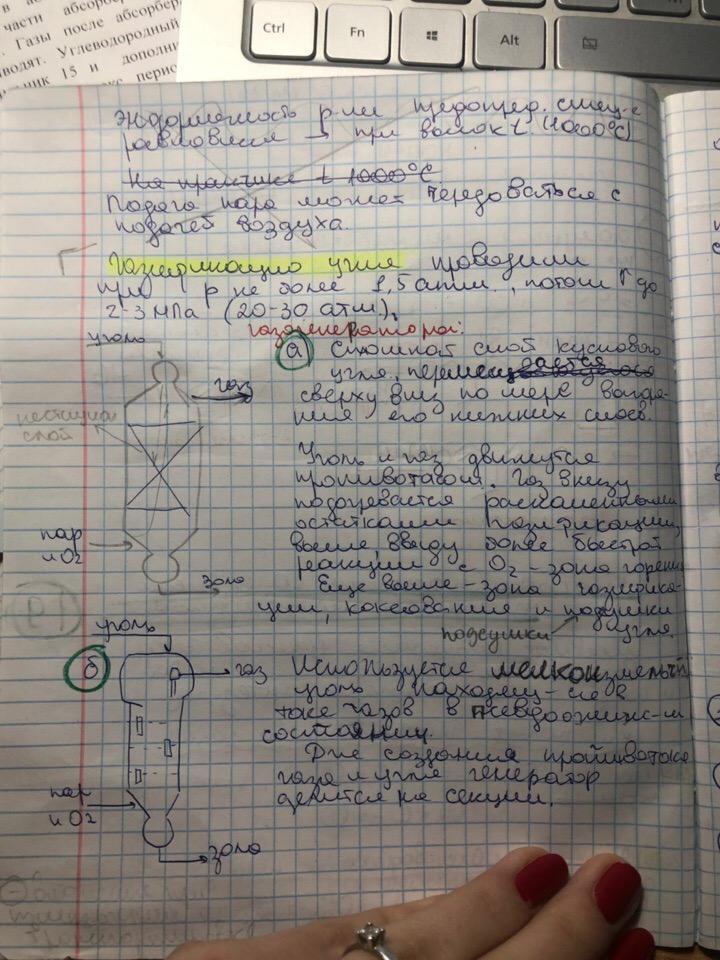 части абсорбе
. Газы после абсорбер
водят. Углеводородный
ник 15 и дополни
Ctrl
Fn
Alt
Эндотермичность р-ии предопред. смещ-е
равновесия → при высок t (1000°C)
На практике t 1000°C
Подача пара может чередоваться с
подачей воздуха.
Газификацию угля проводили
при p не более 1,5 атм., потом ↑ до
2-3 МПа (20-30 атм).
газогенераторы:
уголь
а) Сплошной слой кускового
угля, перемещ
газ
сверху вниз по мере выгора-
ния его нижних слоев.
слой
Уголь и газ движутся
противотоком. Газ внизу
подогревается раскаленными
остатками газификации,
пар
и O2
выше, ввиду более быстрой
реакции с O2 - зона горения
зола
Еще выше - зона газифика-
ции, коксования и подсушки
подсушки
угля.
уголь
б
газ
Используется мелкоизмельч
уголь находящ-ся в
токе газов в псевдоожиж-м
состоянии.
Для создания противотока
газа и угля генератор
делится на секции.
пар
и O2
зола